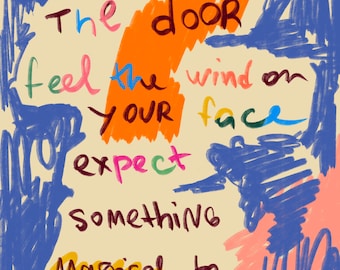 The dooR
feel the wind on
YOUR face
expect
something
magical to